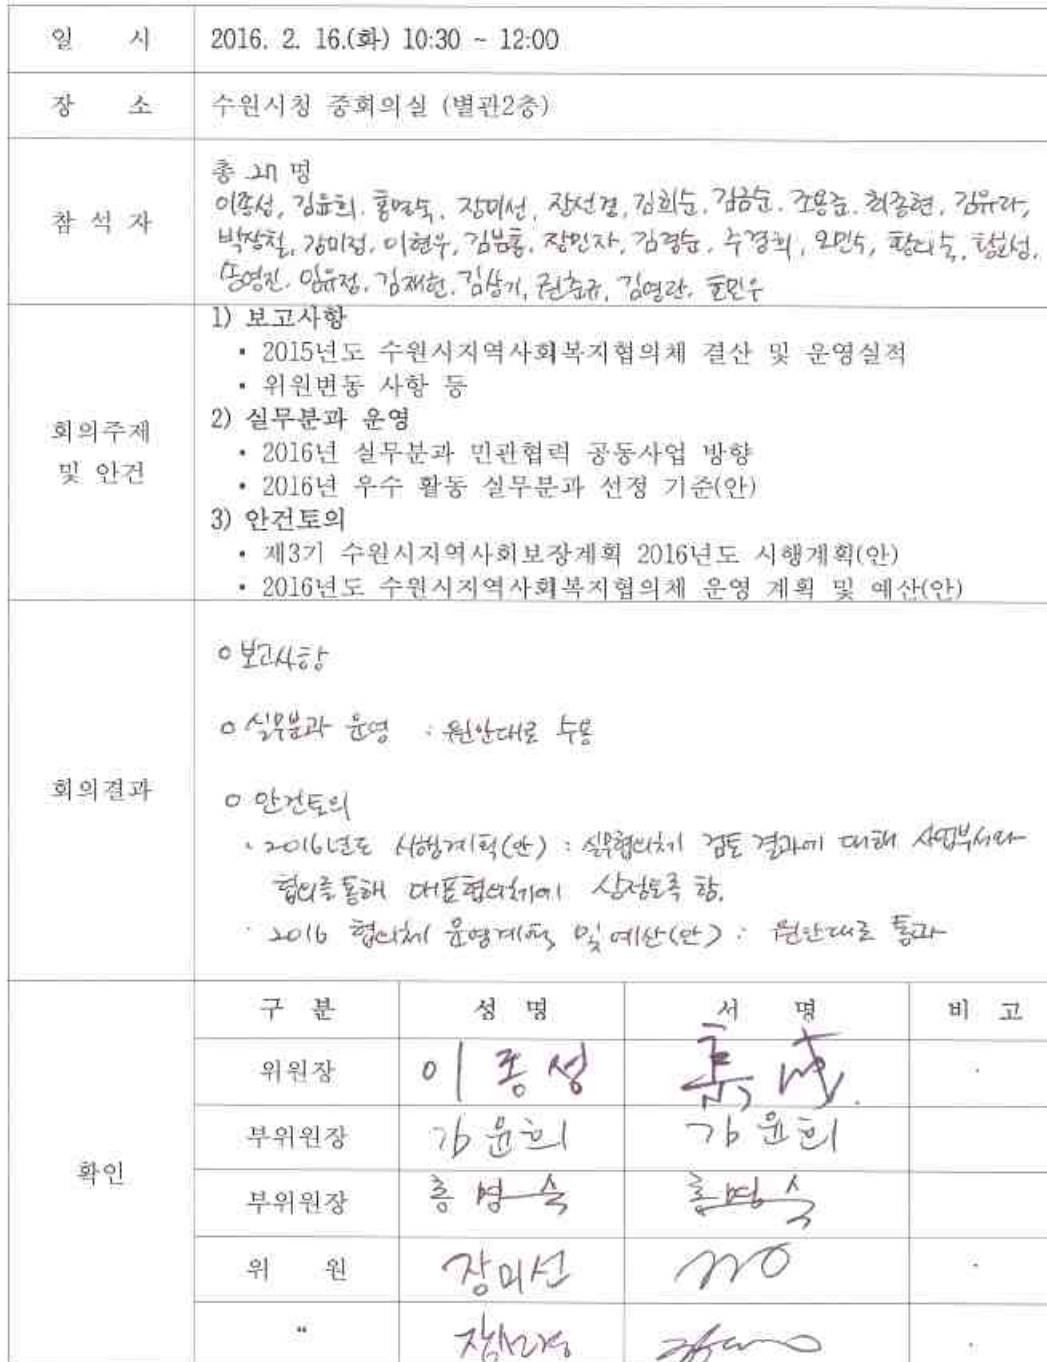 일 시 2016. 2. 16.(화) 10:30 ~ 12:00
장 소 수원시청 중회의실 (별관2층)
참 석 자
총 27 명
이종성, 김윤희, 홍명숙, 장미선, 장선경, 김희순, 김금순, 조용준, 최종현, 김유라,
박장철, 강미정, 이현우, 김봉홍, 장민자, 김경순, 주경희, 오민수, 황대숙,
송영진, 임유정, 김재헌, 김상기, 권춘규, 김영란, 홍민우
회의주제
및 안건
1) 보고사항
▪ 2015년도 수원시지역사회복지협의체 결산 및 운영실적
▪ 위원변동 사항 등
2) 실무분과 운영
• 2016년 실무분과 민관협력 공동사업 방향
• 2016년 우수 활동 실무분과 선정 기준(안)
3) 안건토의
• 제3기 수원시지역사회보장계획 2016년도 시행계획(안)
• 2016년도 수원시지역사회복지협의체 운영 계획 및 예산(안)
회의결과
○ 보고사항
○ 실무분과 운영 : 원안대로 수용
○ 안건토의
· 2016년도 시행계획(안) : 실무협의체 검토 결과에 대해 사업부서와
협의를 통해 대표협의체에 상정토록 함.
· 2016 협의체 운영계획 및 예산(안) : 원안대로 통과
확인
구 분 성 명 서 명 비 고
위원장 이종성
부위원장 김윤희 김윤희
부위원장 홍명숙 홍명숙
위 원 장미선
" 장선경